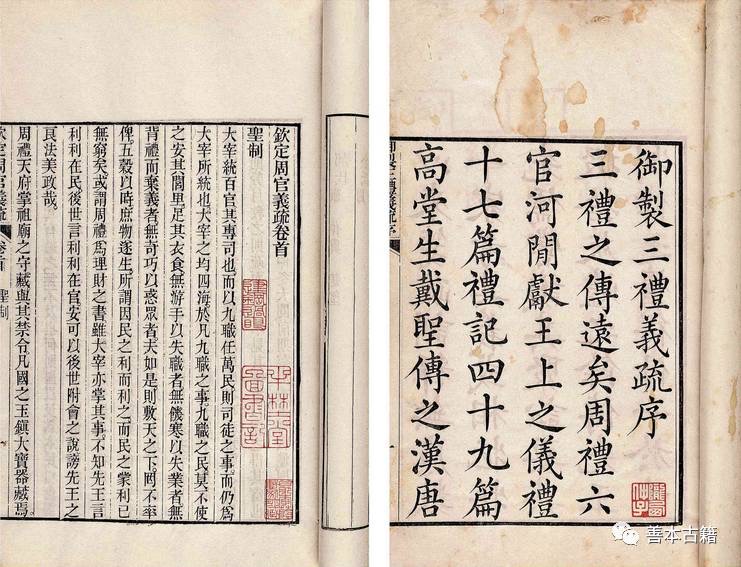 御製三禮義疏序
三禮之傳遠矣周禮六
官河閒獻王上之儀禮
十七篇禮記四十九篇
高堂生戴聖傳之漢唐
欽定周官義疏卷首
聖制
大宰統百官其專司也而以九職任萬民則司徒之事而仍為
大宰所統也大宰之均四海於凡九職之事九職之民莫不使
之安其閭里足其衣食無游手以失職者無饑寒以失業者無
背禮而棄義者無奇巧以惑眾者夫如是則敷天之下罔不率
俾五穀以時庶物遂生所謂因民之利而利之而民之蒙利已
無窮矣或謂周禮為理財之書雖大宰亦掌其事不知先王言
利利在民後世言利利在官安可以後世附會之說謗先王之
良法美政哉
周禮天府掌祖廟之守藏與其禁令凡國之玉鎮大寶器藏焉
欽定周官義疏 卷首 聖制
善本古籍